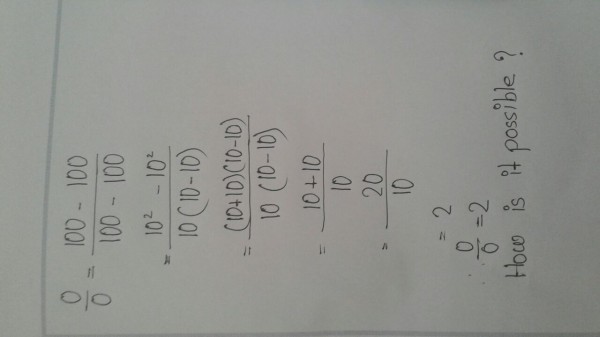 0/0 = (100 - 100)/(100 - 100)
= (10² - 10²)/(10(10-10))
= ((10+10)(10-10))/(10 (10-10))
= (10+10)/10
= 20/10
= 2
∴ 0/0 = 2
How is it possible ?